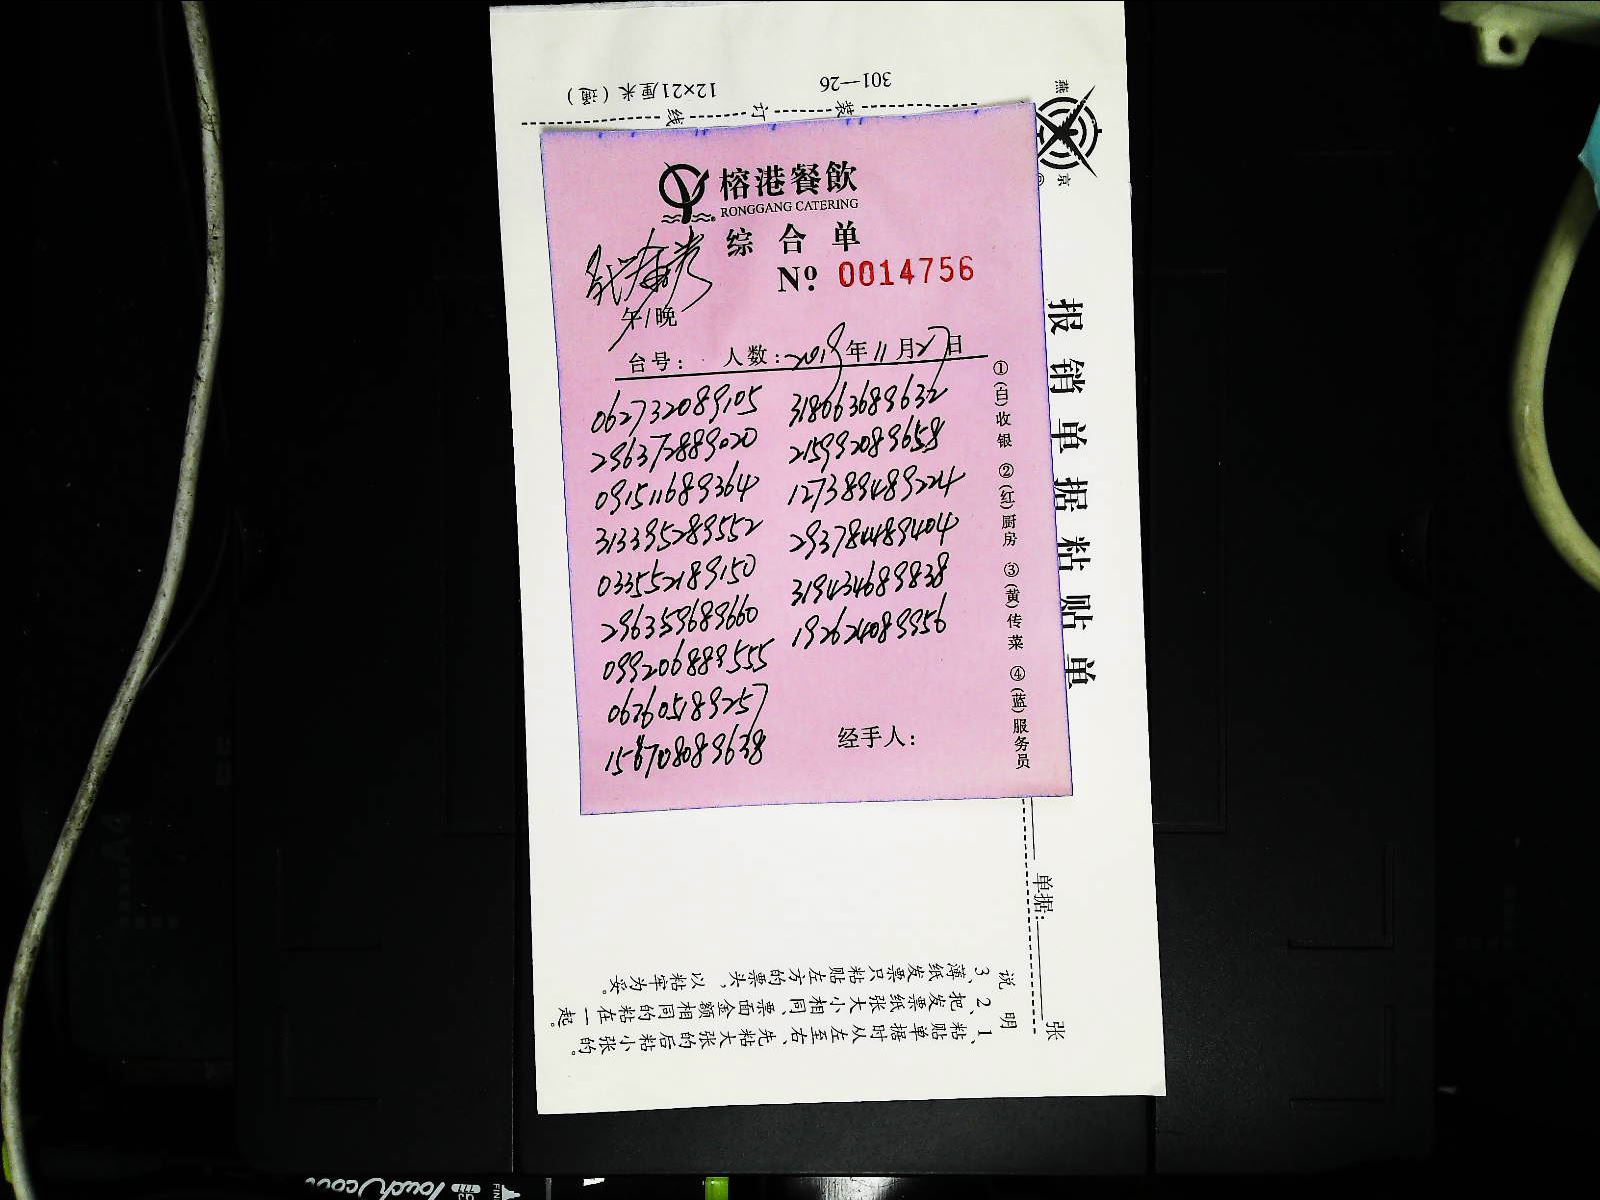 301—26
12×21厘米（通）
装 订 线
燕
京
榕港餐飲
RONGGANG CATERING
综合单
Nº 0014756
午/晚
台号： 人数：2019年11月27日
062732089105 318063689632
296372889020 215992089658
091511689364 127389489224
313395289552 293784489404
033552189150 319434689838
296359689660 192624089956
099206889555
062605189257
156708089638
经手人：
①(白)收银 ②(红)厨房 ③(黄)传菜 ④(蓝)服务员
报销单据粘贴单
单据： 张
说明
1、粘贴单据时从左至右、先粘大张的后粘小张的。
2、把发票纸张大小相同、票面金额相同的粘在一起。
3、薄纸发票只粘贴左方的票头，以粘牢为妥。
Touch cool